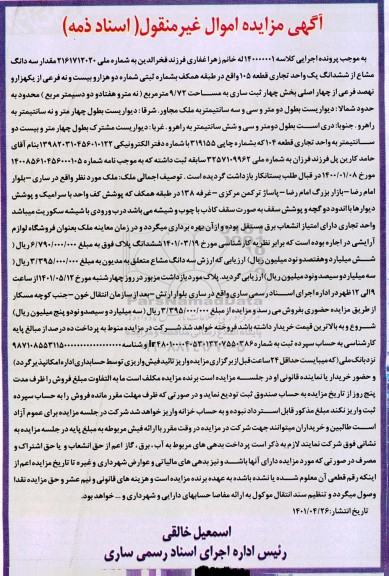 آگهی مزایده اموال غیرمنقول( اسناد ذمه)
به موجب پرونده اجرایی کلاسه ۱۴۰۰۰۰۰۱ له خانم زهرا غفاری فرزند فخرالدین به شماره ملی ۲۱۶۱۷۱۲۰۲۰ مقدار سه دانگ
مشاع از ششدانگ یک واحد تجاری قطعه ۱۰۵ واقع در طبقه همکف بشماره ثبتی شماره دو هزار و بیست و نه فرعی از یکهزار و
نهصد فرعی از چهار اصلی بخش چهار ثبت ساری به مساحت ۹/۷۲ مترمربع (نه متر و هفتاد و دو دسیمتر مربع) محدود به
حدود شمالا : دیواریست بطول دو متر و سی و سه سانتیمتر به ملک مجاور. شرقا : دیواریست بطول چهار متر و نه سانتیمتر به
راهرو . جنوبا: دری است بطول دومتر و سی و شش سانتیمتر به راهرو . غربا : دیواریست مشترک بطول چهار متر و بیست و دو
سانتیمتر به واحد تجاری قطعه ۱۰۴ که بشماره چاپی ۳۱۹۱۵۵ با شماره دفتر الکترونیکی ۱۳۹۸۲۰۳۱۰۴۵۶۰۱۰۱۲۲ بنام آقای
حامد کارین پل فرزند فرزان به شماره ملی ۲۲۵۷۱۰۹۹۶۲ سابقه ثبت داشته که به موجب نامه شماره ۱۴۰۰۸۵۶۱۰۴۵۶۰۰۰۱۰۵
مورخ ۱۴۰۰/۰۱/۰۸ در قبال طلب بستانکار بازداشت گردیده است . توصیف اجمالی ملک: ملک مورد نظر واقع در ساری -بلوار
امام رضا -بازار بزرگ امام رضا -پاساژ ترکمن مرکزی -غرفه ۱۳۸ در طبقه همکف که پوشش کف واحد با سرامیک و پوشش
دیوارها با اندود دو گچه و پوشش سقف به صورت سقف کاذب با چوب و شیشه می باشد درب ورودی با شیشه سکوریت میباشد
واحد تجاری دارای امتیاز انشعاب برق مستقل بوده و از آن بهره برداری میگردد و در زمان معاینه ملک بعنوان فروشگاه لوازم
آرایشی در اجاره بوده است که برابر نظریه کارشناسی مورخ ۱۴۰۱/۰۳/۱۹ ششدانگ پلاک فوق به مبلغ ۶/۷۹۰/۰۰۰/۰۰۰ ریال (
شش میلیارد و هفتصد و نود میلیون ریال) ارزیابی که ارزش سه دانگ مشاع متعلق به مدیون به مبلغ ۳/۳۹۵/۰۰۰/۰۰۰ ریال (
سه میلیارد و سیصد و نود و پنج میلیون ریال) ارزیابی گردید. پلاک مورد بازداشت مزبور در روز چهار شنبه مورخ ۱۴۰۱/۰۵/۱۲ از ساعت
۹ الی ۱۲ ظهر در اداره اجرای اسناد رسمی ساری واقع در ساری بلوار ارتش -بعد از سازمان انتقال خون -جنب کوچه مسکار
از طریق مزایده حضوری بفروش می رسد و مزایده از مبلغ ۳/۳۹۵/۰۰۰/۰۰۰ ریال (سه میلیارد و سیصد و نود و پنج میلیون ریال)
شروع و به بالاترین قیمت خریدار داشته باشد فروخته خواهد شد شرکت در مزایده منوط به پرداخت ده درصد از مبالغ پایه
نزد بانک ملی (که میبایست حداقل ۲۴ ساعت قبل از برگزاری مزایده واریز تائید فیش واریزی توسط حسابداری اداره امکانپذیر گردد)
و حضور خریدار یا نماینده قانونی او در جلسه مزایده است برنده مزایده مکلف است ما به التفاوت مبلغ فروش را ظرف مدت
پنج روز از تاریخ مزایده به حساب صندوق ثبت تودیع نماید و در صورتی که ظرف مهلت مقرر مانده فروش را به حساب سپرده
ثبت واریز نکند مبلغ مذکور قابل استرداد نبوده و به حساب خزانه واریز خواهد شد شرکت در جلسه مزایده برای عموم آزاد
است طالبین و خریداران میتوانند جهت شرکت در مزایده در وقت مقرر با ارائه فیش مربوطه به مبلغ پایه در جلسه مزایده به
نشانی فوق شرکت نمایند لازم به ذکر است پرداخت بدهی های مربوط به آب ، برق ، گاز اعم از حق انشعاب و یا حق اشتراک و
مصرف در صورتی که مورد مزایده دارای آنها باشد و نیز بدهی های مالیاتی و عوارض شهرداری و غیره تا تاریخ مزایده اعم از
اینکه رقم قطعی آن معلوم شده یا نشده باشد به عهده برنده مزایده است و هزینه های قانونی و نیم عشر و حق مزایده نقدا
وصول میگردد و تنظیم سند انتقال موکول به ارائه مفاصا حسابهای دارایی و شهرداری و ... خواهد بود.
تاریخ انتشار: ۱۴۰۱/۰۴/۲۶
اسمعیل خالقی
رئیس اداره اجرای اسناد رسمی ساری